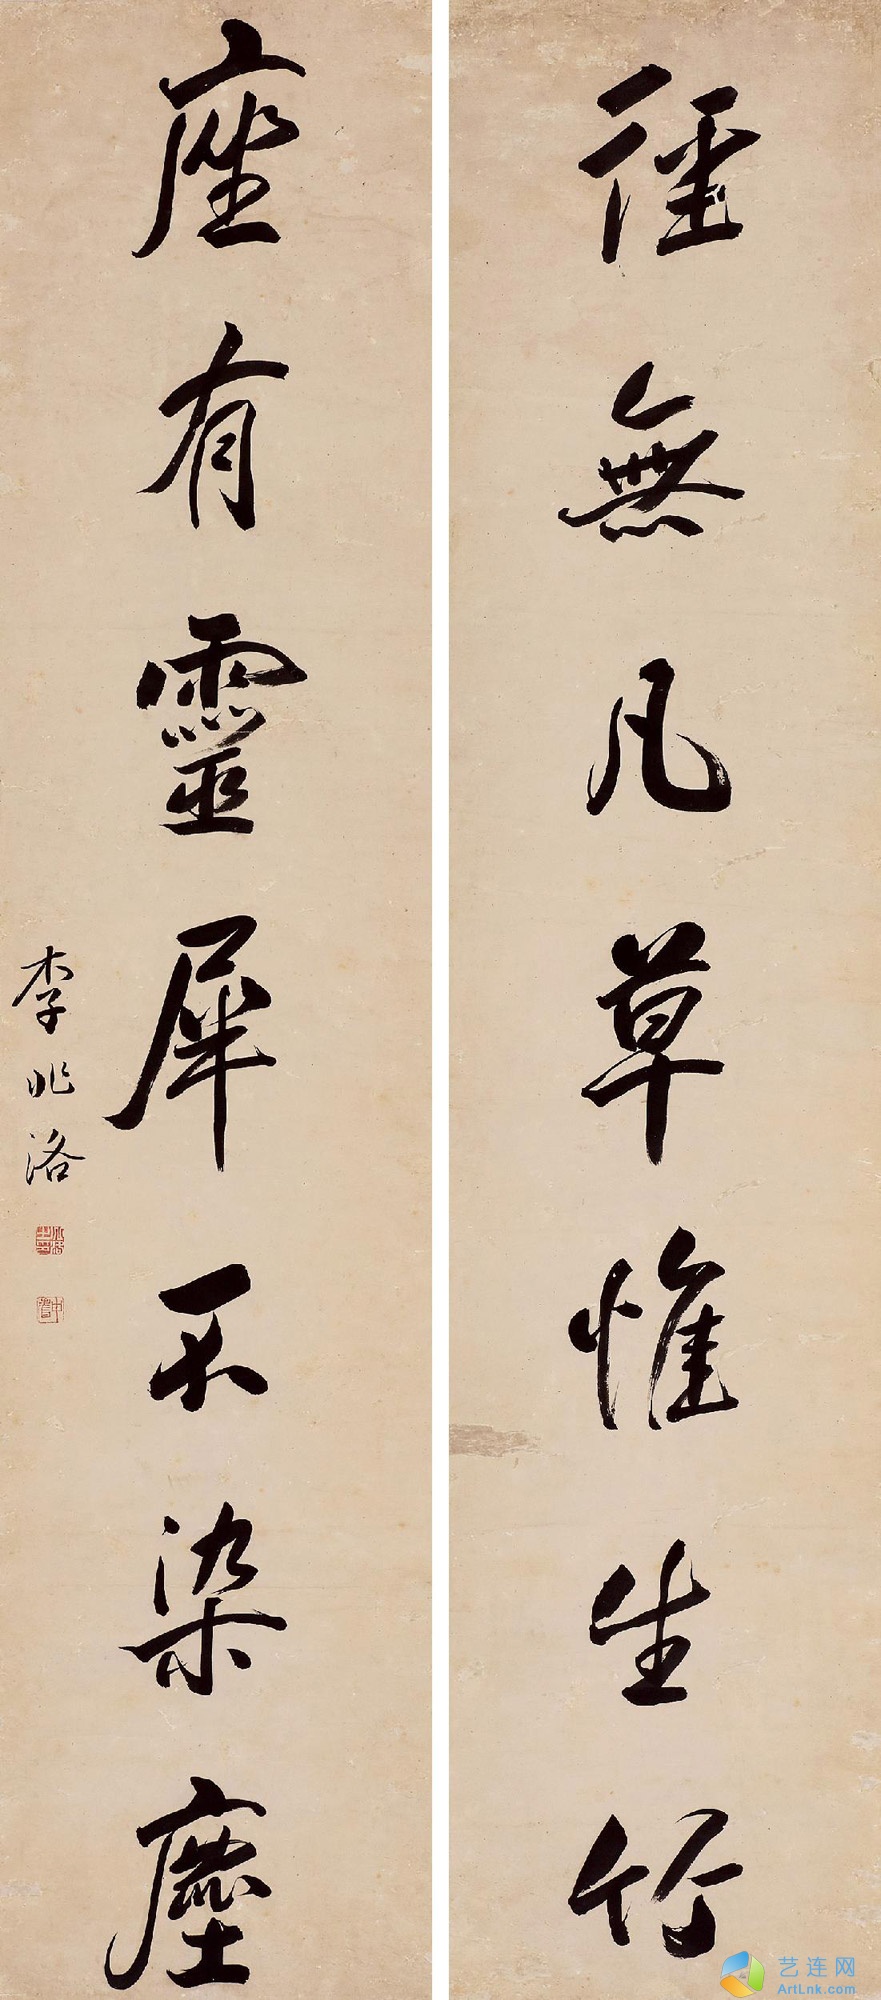 徑無凡草惟生竹
座有靈犀不染塵
李兆洛
艺连网
ArtLnk.com